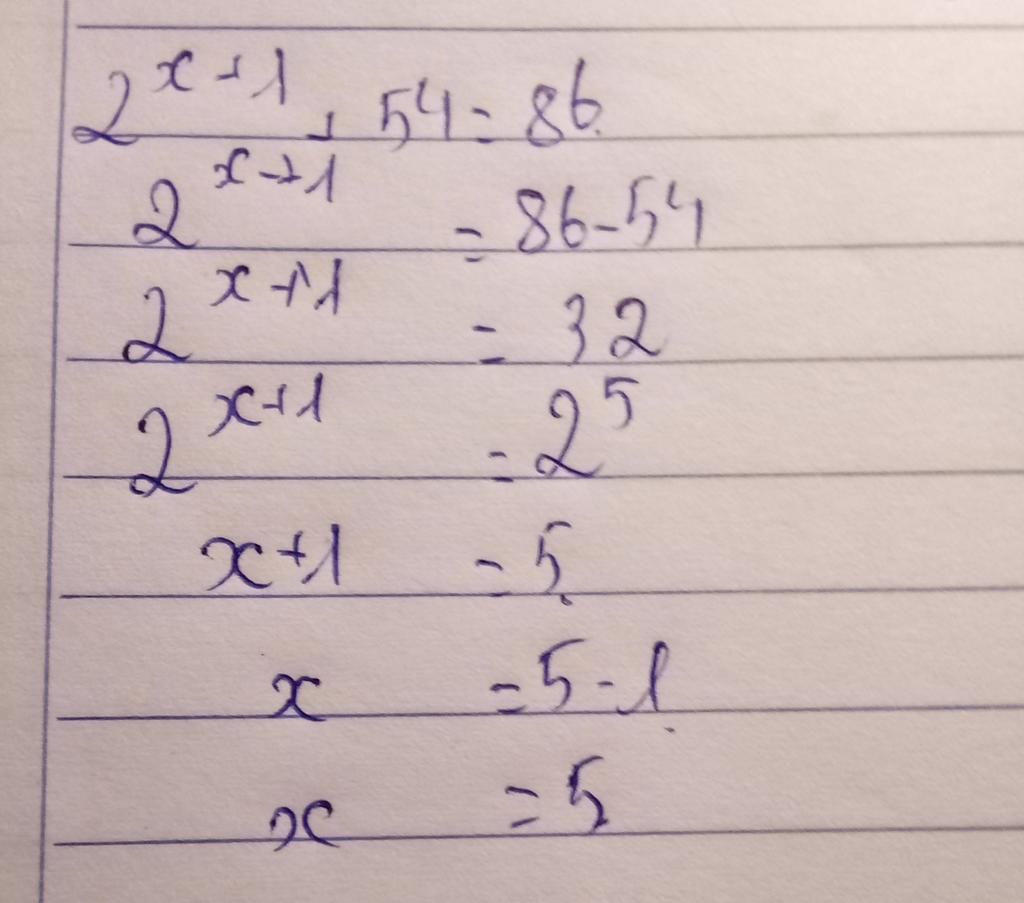 2^{x+1} + 54 = 86
2^{x+1} = 86 - 54
2^{x+1} = 32
2^{x+1} = 2^5
x+1 = 5
x = 5 - 1
x = 5